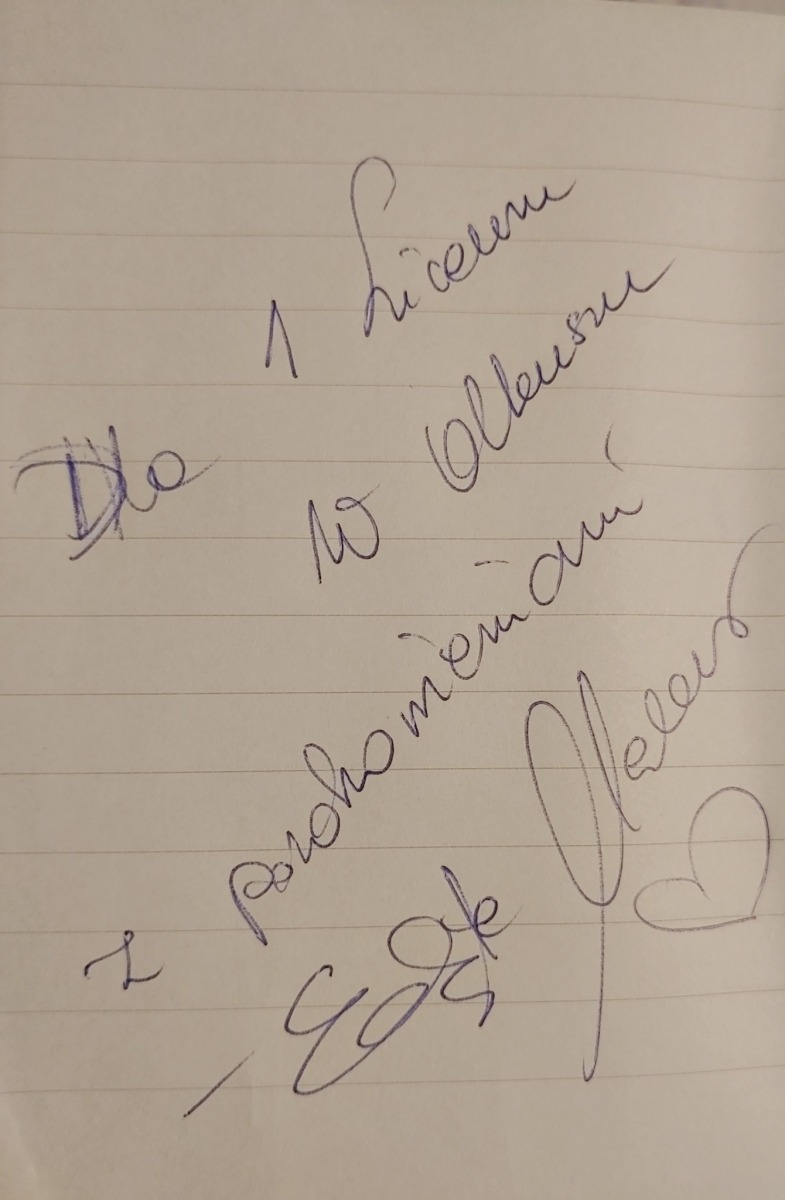 Dla 1 Liceum
W Olkuszu
z pozdrowieniami
- Edyta